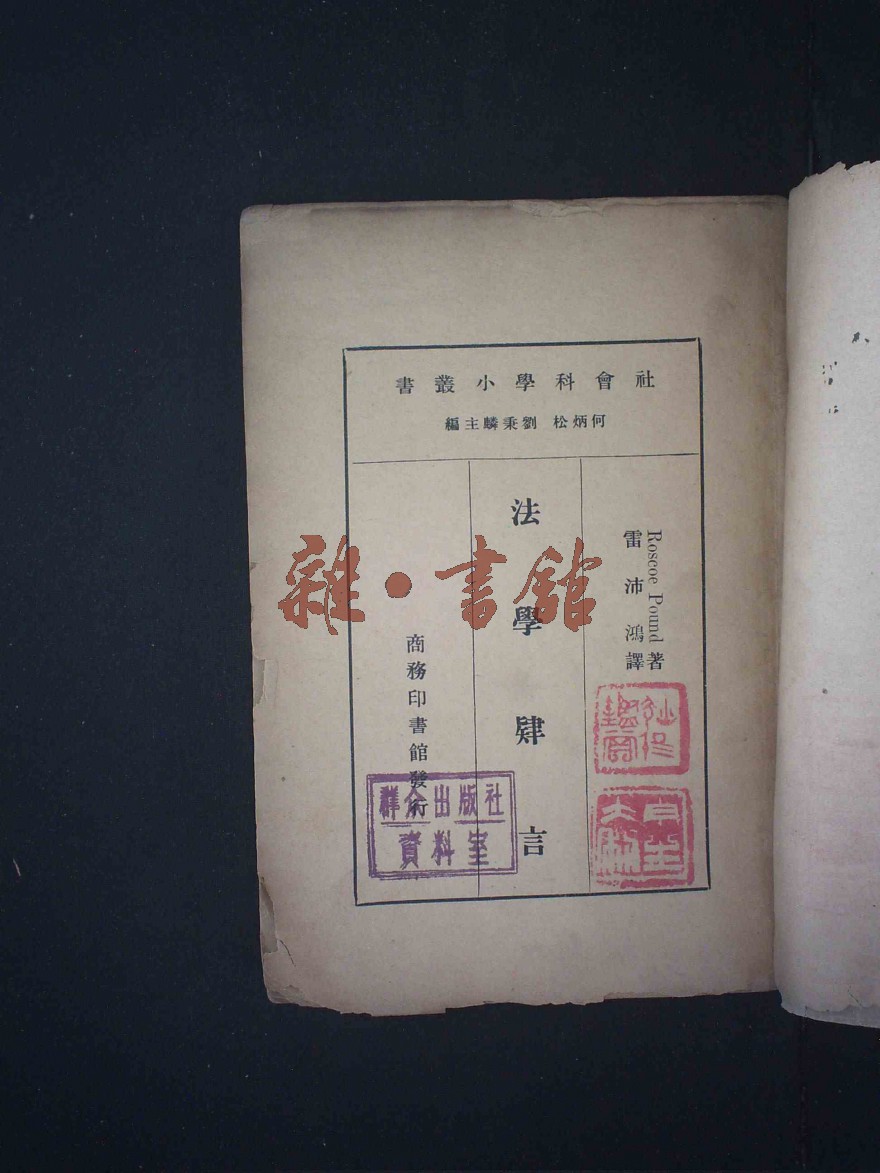 社會科學小叢書
何炳松 劉秉麟主編
Roscoe Pound 著
雷沛鴻譯
法學肄言
商務印書館發行
群众出版社
資料室
雜·書館